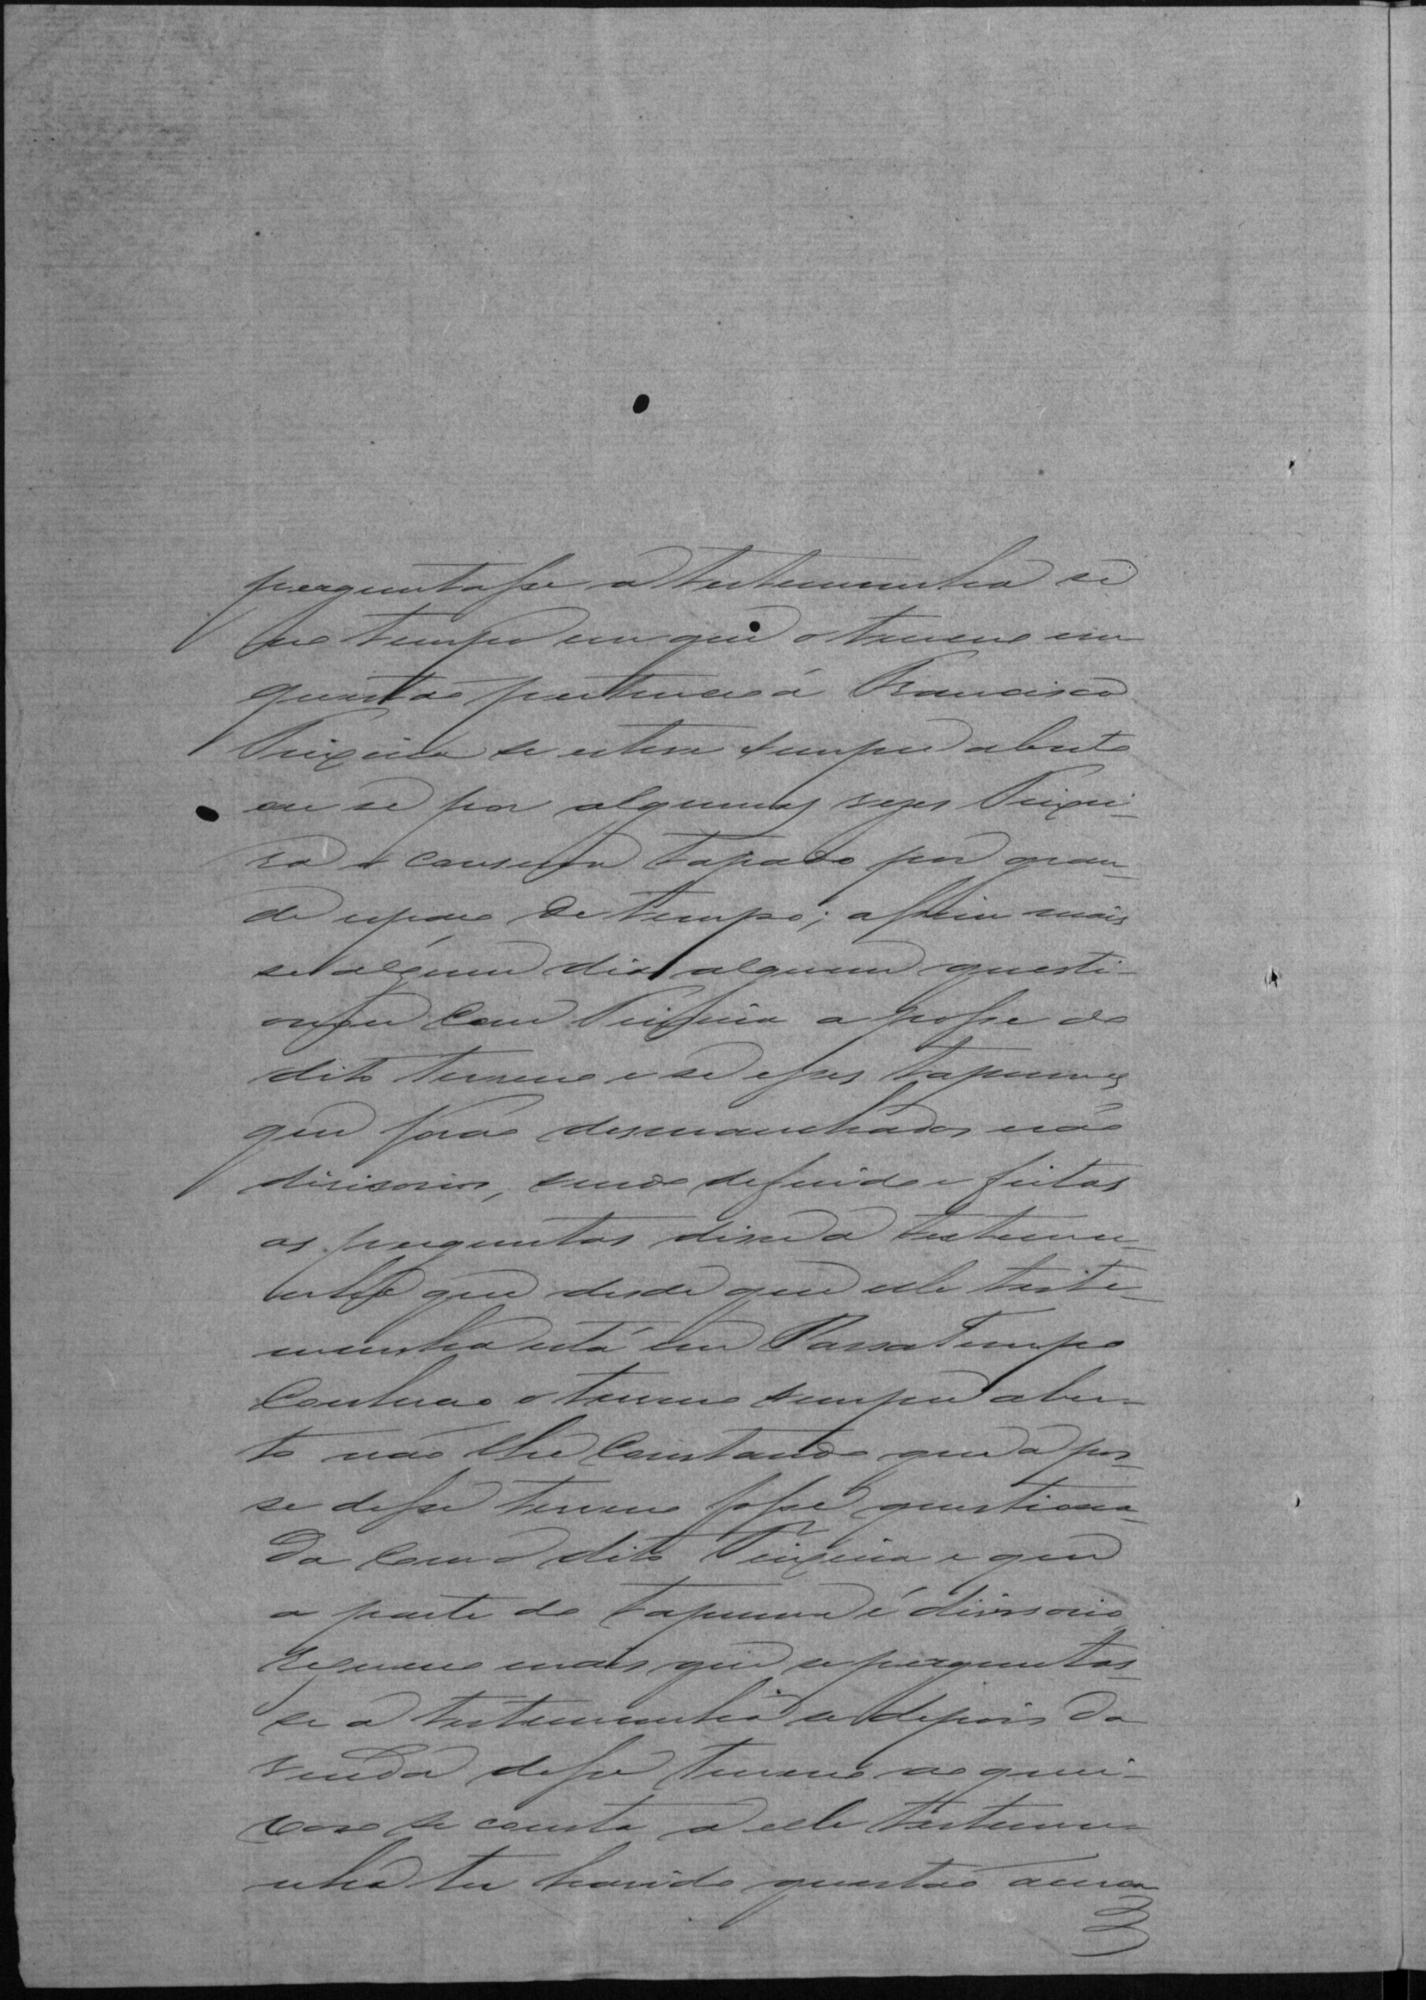 perguntasse a testemunha si
no tempo em que o terreno em
questão pertencia á Francisco
Teixeira se esteve sempre aberto
ou se por algumas vezes Teixei-
ra o conservou tapado por gran-
de espaço de tempo; assim mais
se algum dia alguem questi-
onou com Teixeira a posse do
dito terreno e se esses tapumes
que forão desmanchados são
divisorios, sendo deferido e feitas
as perguntas disse a testemu-
nha que desde que elle teste-
munha está em Passa Tempo
conheceo o terreno sempre aber-
to não lhe constando que a pos-
se desse terreno fosse questiona-
da com o dito Teixeira e que
a parte do tapume é divisorio
Requereo mais que se perguntas-
se a testemunha se depois da
venda desse terreno ao quei-
xoso se consta a elle testemu-
nha ter havido questão acerca